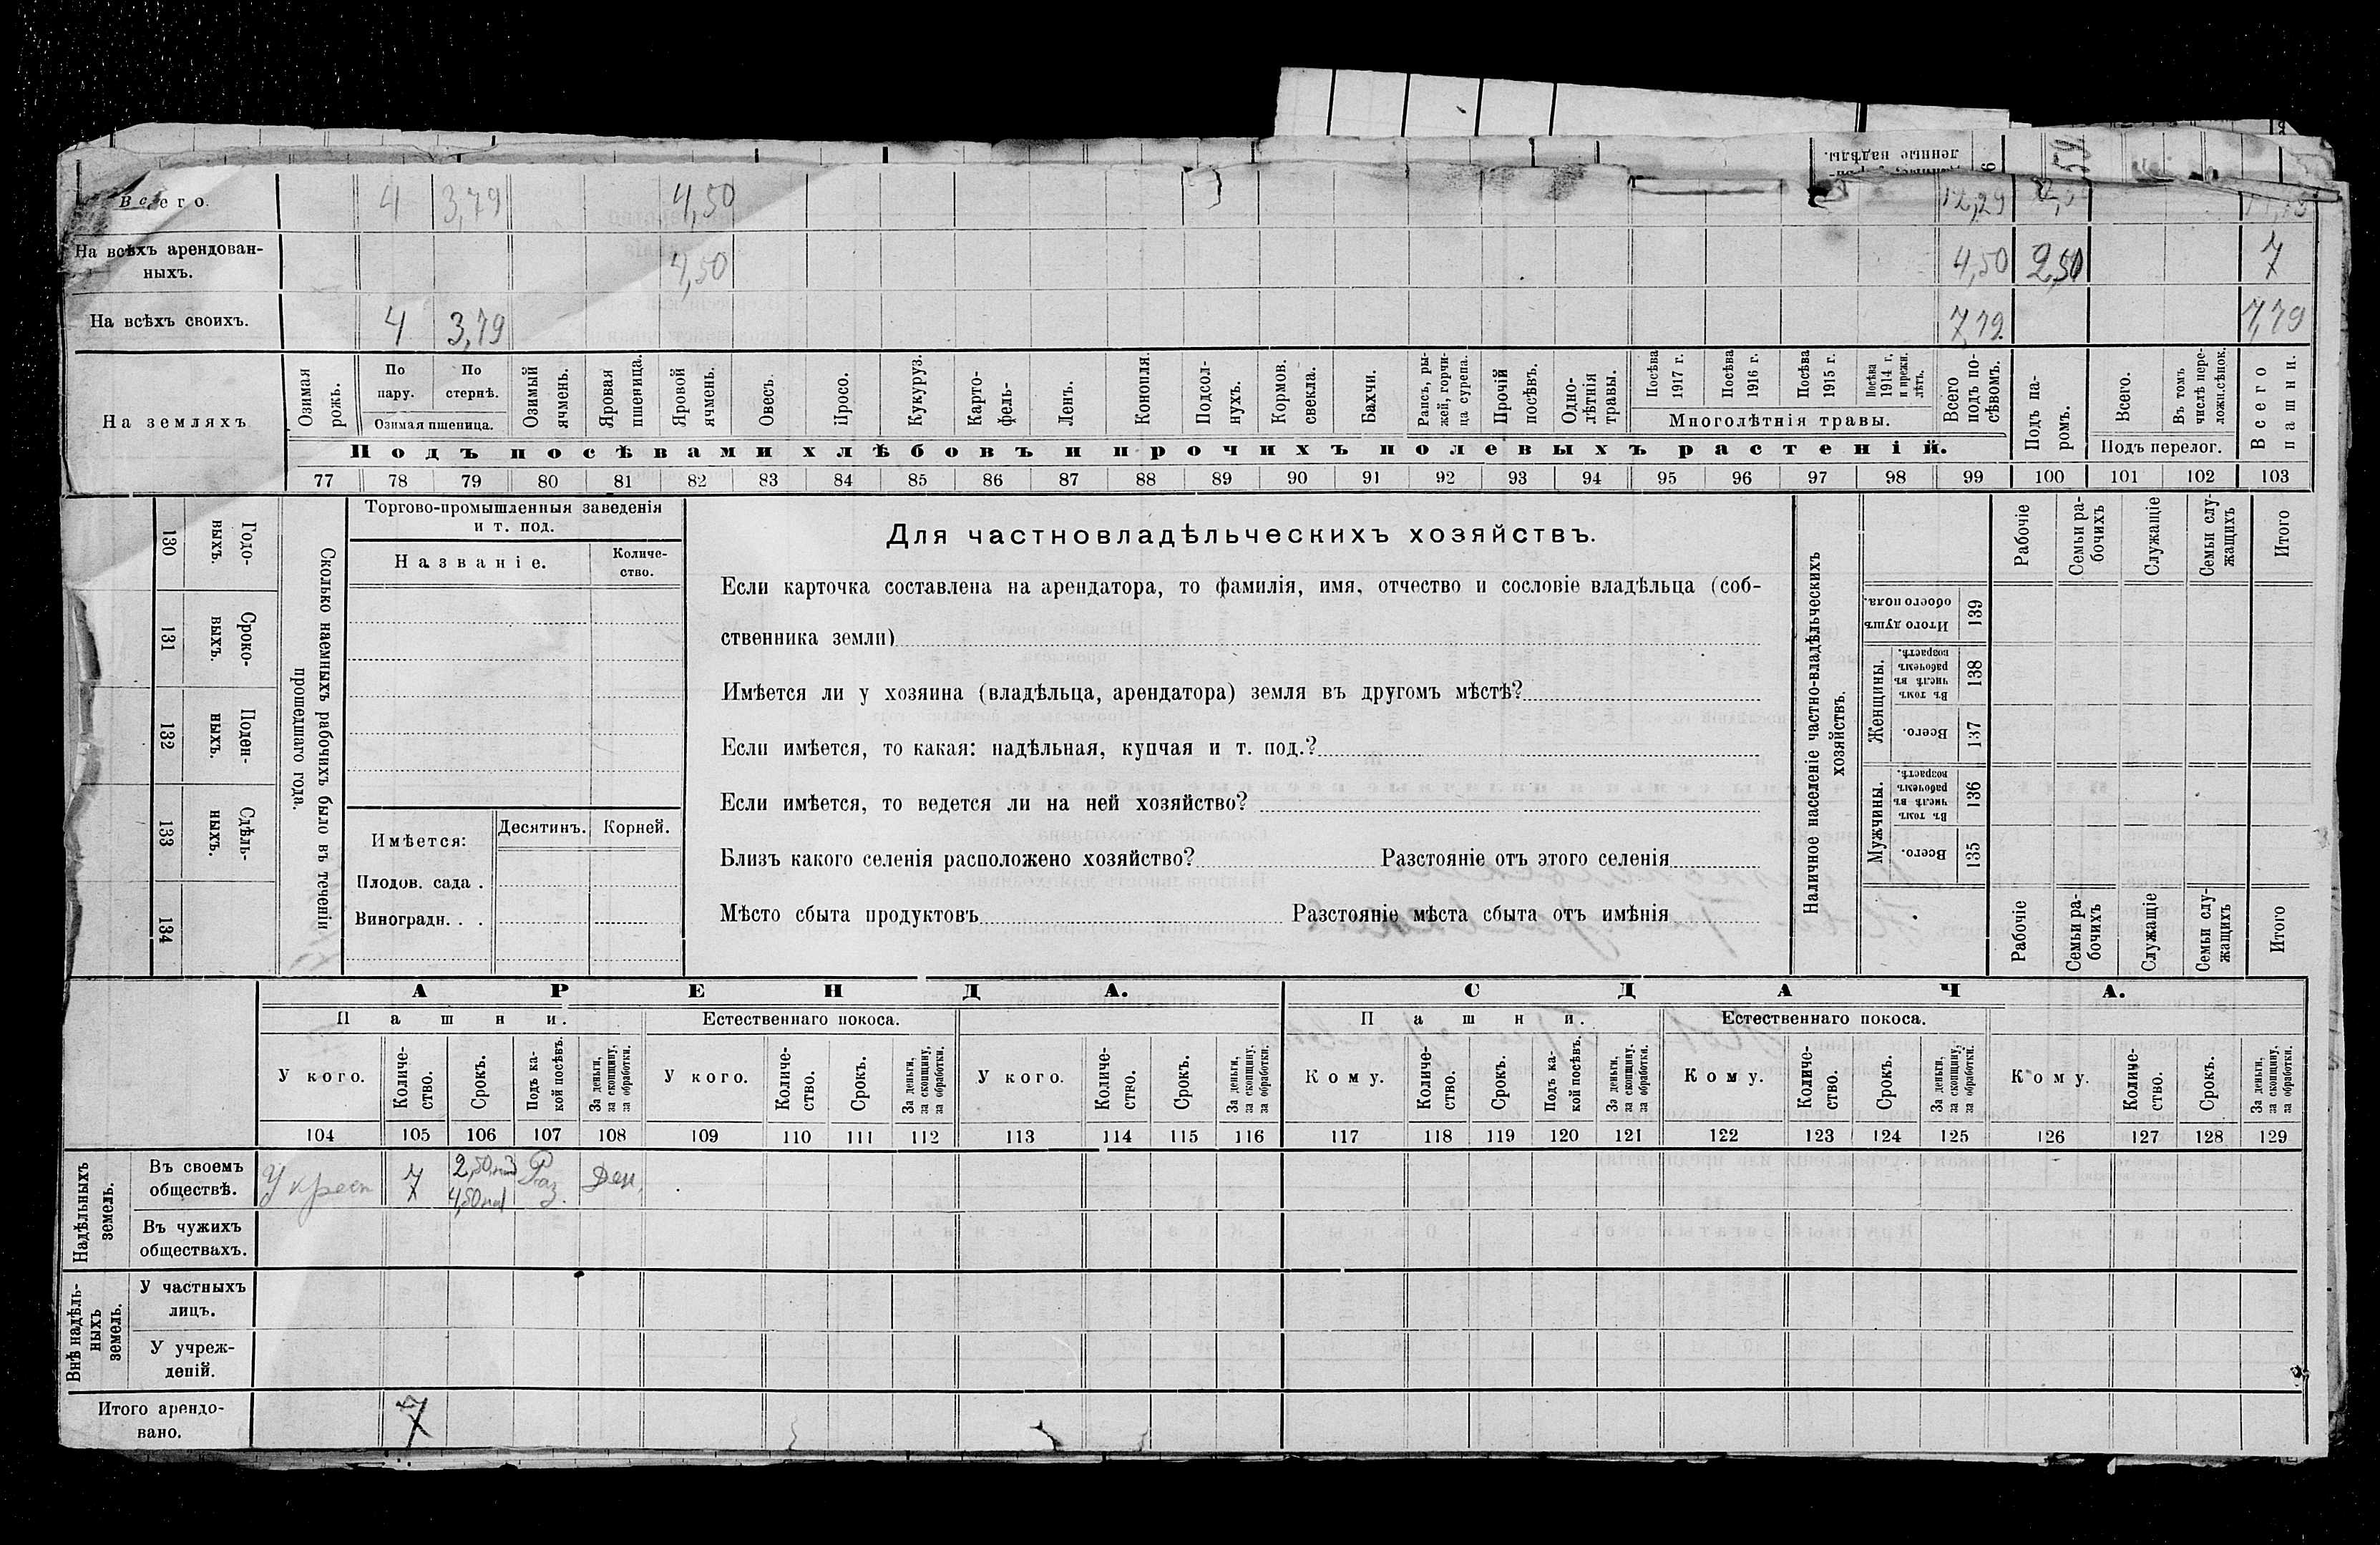 Всего. 4 3,79 4,50 12,29
На всѣхъ арендован-
ныхъ. 4,50 4,50 2,50 7
На всѣхъ своихъ. 4 3,79 7,79 7,79
На земляхъ
Озимая рожь.
По пару.
По стернѣ.
Озимая пшеница.
Озимый ячмень.
Яровая пшеница.
Яровой ячмень.
Овесъ.
Просо.
Кукуруз.
Карто-
фель-
Ленъ.
Конопля.
Подсол-
нухъ.
Кормов. свекла.
Бахчи.
Рапсъ, ры-
жей, горчи-
ца сурепа.
Прочій посѣвъ.
Одно-
лѣтнія травы.
Посѣва 1917 г.
Посѣва 1916 г.
Посѣва 1915 г.
Посѣва 1914 г. и прежн. лѣтъ.
Многолѣтнія травы.
Всего подъ по-
сѣвомъ.
Подъ па-
ромъ.
Всего.
Въ томъ числѣ пере-
ложн.сѣнок.
Подъ перелог.
Всего пашни.
Подъ посѣвами хлѣбовъ и прочихъ полевыхъ растеній.
77 78 79 80 81 82 83 84 85 86 87 88 89 90 91 92 93 94 95 96 97 98 99 100 101 102 103
130 Годо-
выхъ.
131 Сроко-
выхъ.
132 Поден-
ныхъ.
133 Сдѣль-
ныхъ.
134
Сколько наемныхъ рабочихъ было въ теченіи
прошедшаго года.
Торгово-промышленныя заведенія
и т. под.
Названіе.
Количе-
ство.
Имѣется:
Десятинъ. Корней.
Плодов. сада .
Виноградн. . .
Для частновладѣльческихъ хозяйствъ.
Если карточка составлена на арендатора, то фамилія, имя, отчество и сословіе владѣльца (соб-
ственника земли)
Имѣется ли у хозяина (владѣльца, арендатора) земля въ другомъ мѣстѣ?
Если имѣется, то какая: надѣльная, купчая и т. под.?
Если имѣется, то ведется ли на ней хозяйство?
Близъ какого селенія расположено хозяйство? Разстояніе отъ этого селенія
Мѣсто сбыта продуктовъ Разстояніе мѣста сбыта отъ имѣнія
Наличное населеніе частно-владѣльческихъ
хозяйствъ.
Рабочіе
Семьи ра-
бочихъ
Служащіе
Семьи слу-
жащихъ
Итого
Итого душъ обоего пола. 139
Женщины.
Въ томъ числѣ въ рабочемъ возрастѣ. 138
Всего. 137
Мужчины.
Въ томъ числѣ въ рабочемъ возрастѣ. 136
Всего. 135
Рабочіе
Семьи ра-
бочихъ
Служащіе
Семьи слу-
жащихъ
Итого
АРЕНДА. СДАЧА.
Пашни. Естественнаго покоса. Пашни. Естественнаго покоса.
У кого.
Количе-
ство.
Срокъ.
Подъ ка-
кой посѣвъ.
За деньги, за скопщину, за обработки.
У кого.
Количе-
ство.
Срокъ.
За деньги, за скопщину, за обработки.
У кого.
Количе-
ство.
Срокъ.
За деньги, за скопщину, за обработки.
Кому.
Количе-
ство.
Срокъ.
Подъ ка-
кой посѣвъ.
За деньги, за скопщину. за обработки.
Кому.
Количе-
ство.
Срокъ.
За деньги, за скопщину, за обработки.
Кому.
Количе-
ство.
Срокъ.
За деньги, за скопщину, за обработки.
104 105 106 107 108 109 110 111 112 113 114 115 116 117 118 119 120 121 122 123 124 125 126 127 128 129
Надѣльныхъ земель.
Въ своемъ
обществѣ. У крест 7 2,50 4,50 Раз. Ден.
Въ чужихъ
обществахъ.
Внѣ надѣль-
ныхъ
земель.
У частныхъ
лицъ.
У учреж-
деній.
Итого арендо-
вано. 7